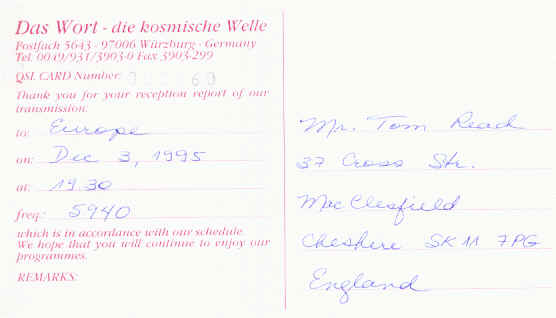 Das Wort - die kosmische Welle
Postfach 5643 - 97006 Würzburg - Germany
Tel. 0049/931/3903-0 Fax 3903-299
QSL CARD Number:
Thank you for your reception report of our
transmission:
to: Europe
on: Dec 3, 1995
at: 19.30
freq.: 5940
which is in accordance with our schedule.
We hope that you will continue to enjoy our
programmes.
REMARKS:
Mr. Tom Reach
37 Cross Str.
MacClesfield
Cheshire SK11 7PG
England